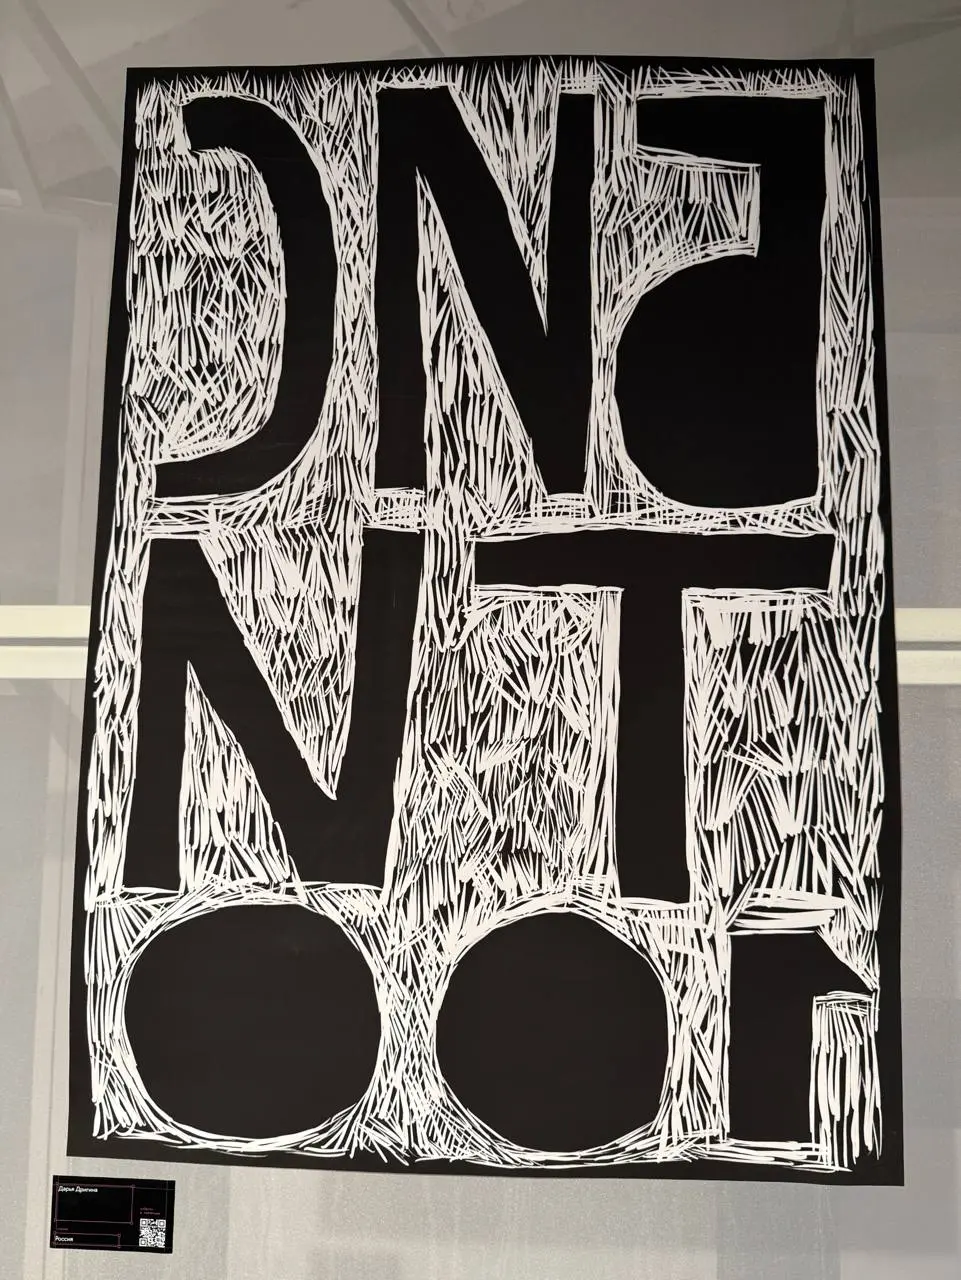 ƆNa
NT
oor
Дарья Дригина
Россия